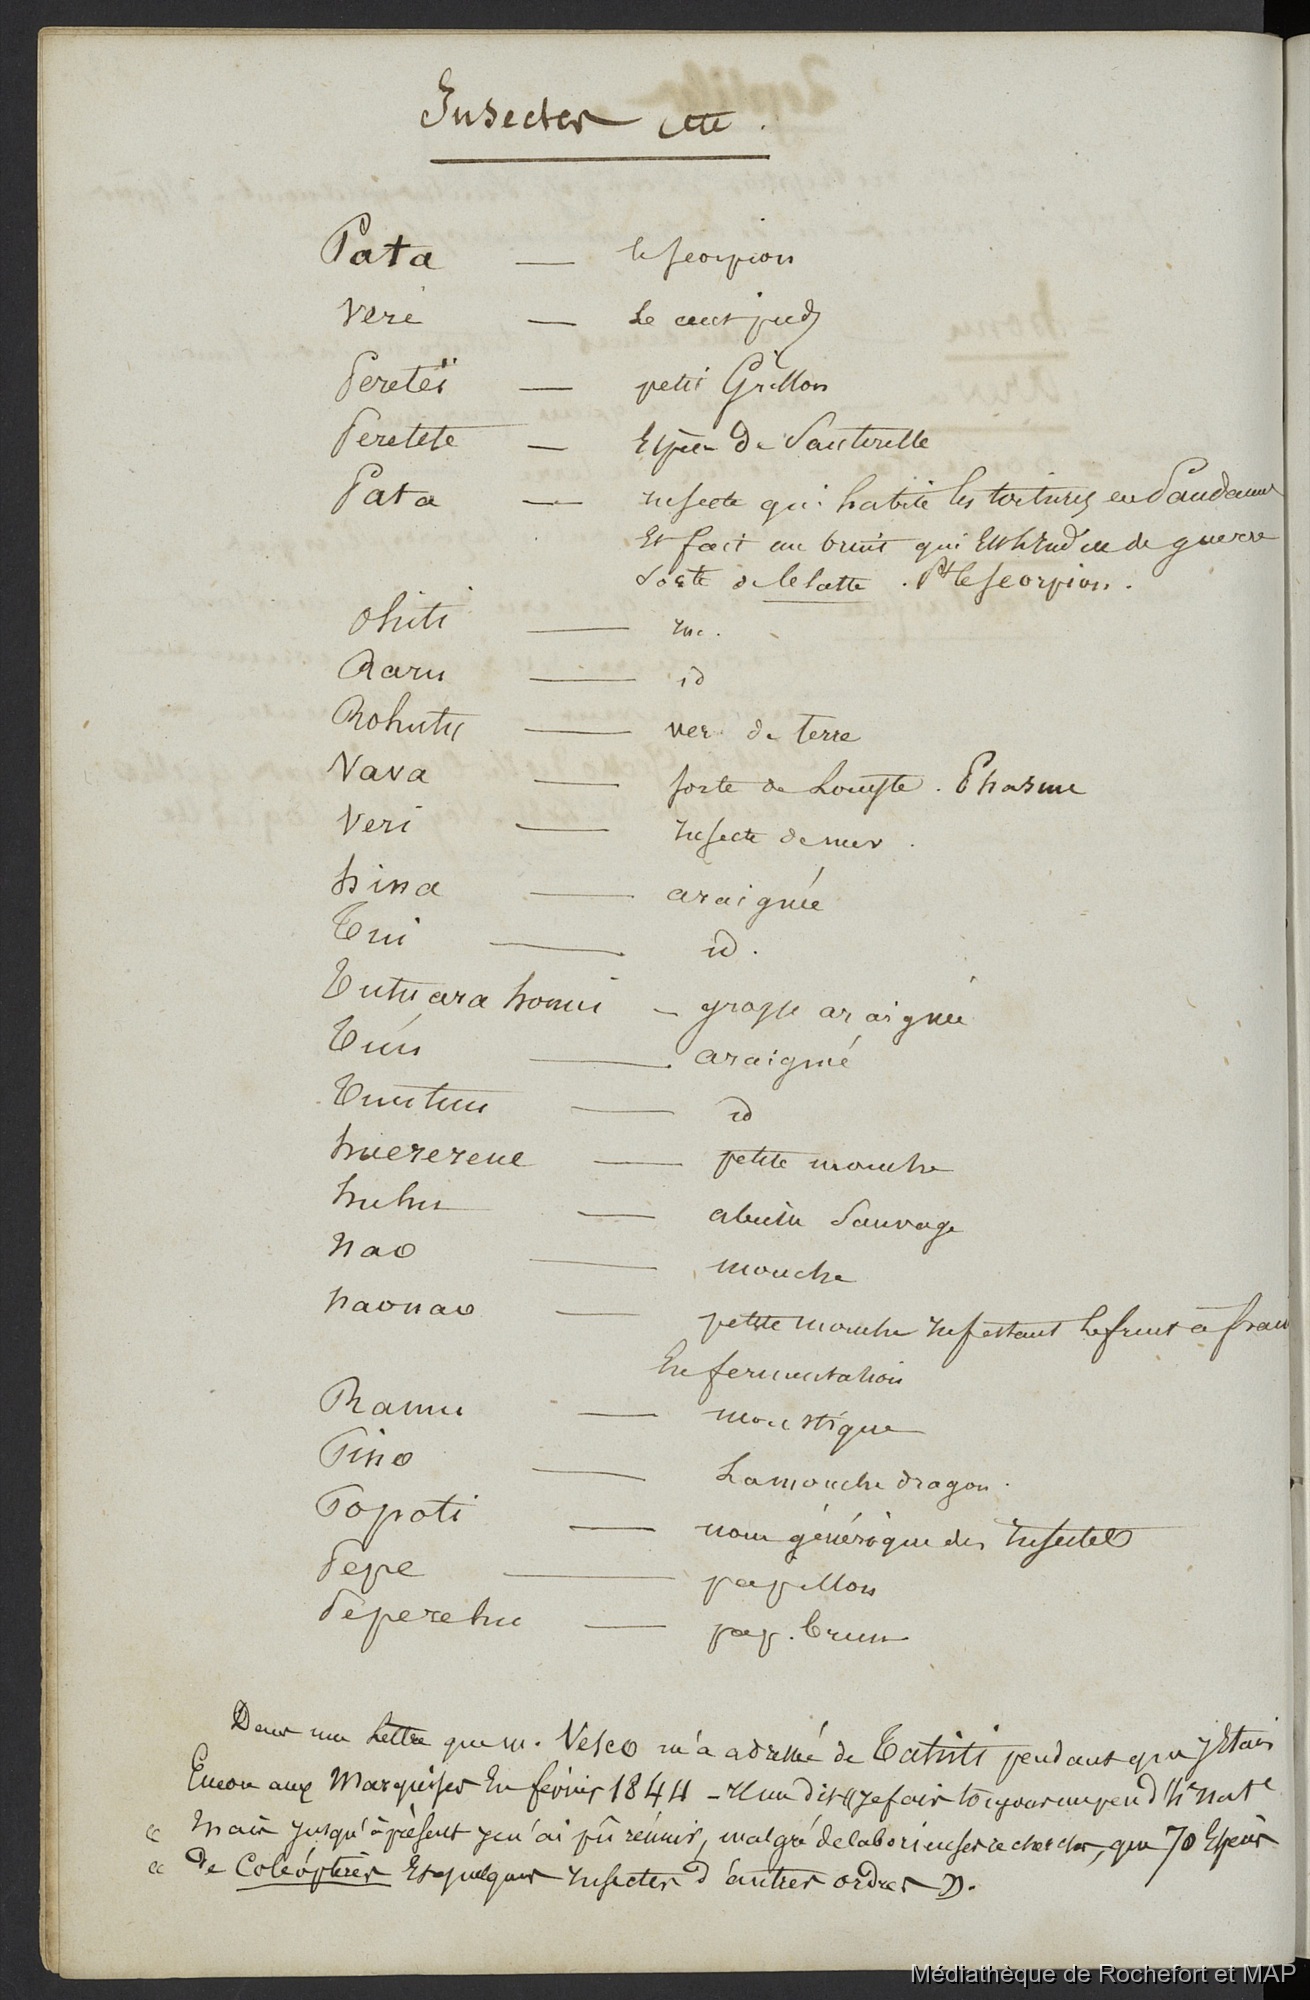 Insectes etc.
Pata — le scorpion
Veri — Le cent pieds
Pereteï — petit Grillon
Peretete — Espèce de Sauterelle
Pata — insecte qui habite les toitures en Pandanus
Et fait un bruit qui Est de guerre
Sorte de blatte. Pt le scorpion.
Ohiti — ins.
Raru — id
Rohutu — ver de terre
Vava — sorte de Locuste. Phasme
Veri — insecte de mer.
hina — araignée
Tui — id.
Tutuarahonui — grosse araignée
Túu — araignée
Tuutuu — id
huererene — petite mouche
huhu — abeille Sauvage
nao — mouche
naonao — petite mouche infestant le fruit à pain
En fermentation
Ramu — moustique
Pino — La mouche dragon.
Popoti — nom générique des Insectes
Pepe — papillon
Peperehu — pap. brun
Dans une Lettre que m. Vesco m'a adressé de Tahiti pendant que j'Etais
Encore aux Marquises En février 1844 - Il me dit « je fais toujours un peu d'h. nat.le
« Mais jusqu'à présent je n'ai pû réunir, malgré de laborieuses recherches, que 70 Espèces
« de Coléoptères Et quelques insectes d'autres ordres ».
Médiathèque de Rochefort et MAP